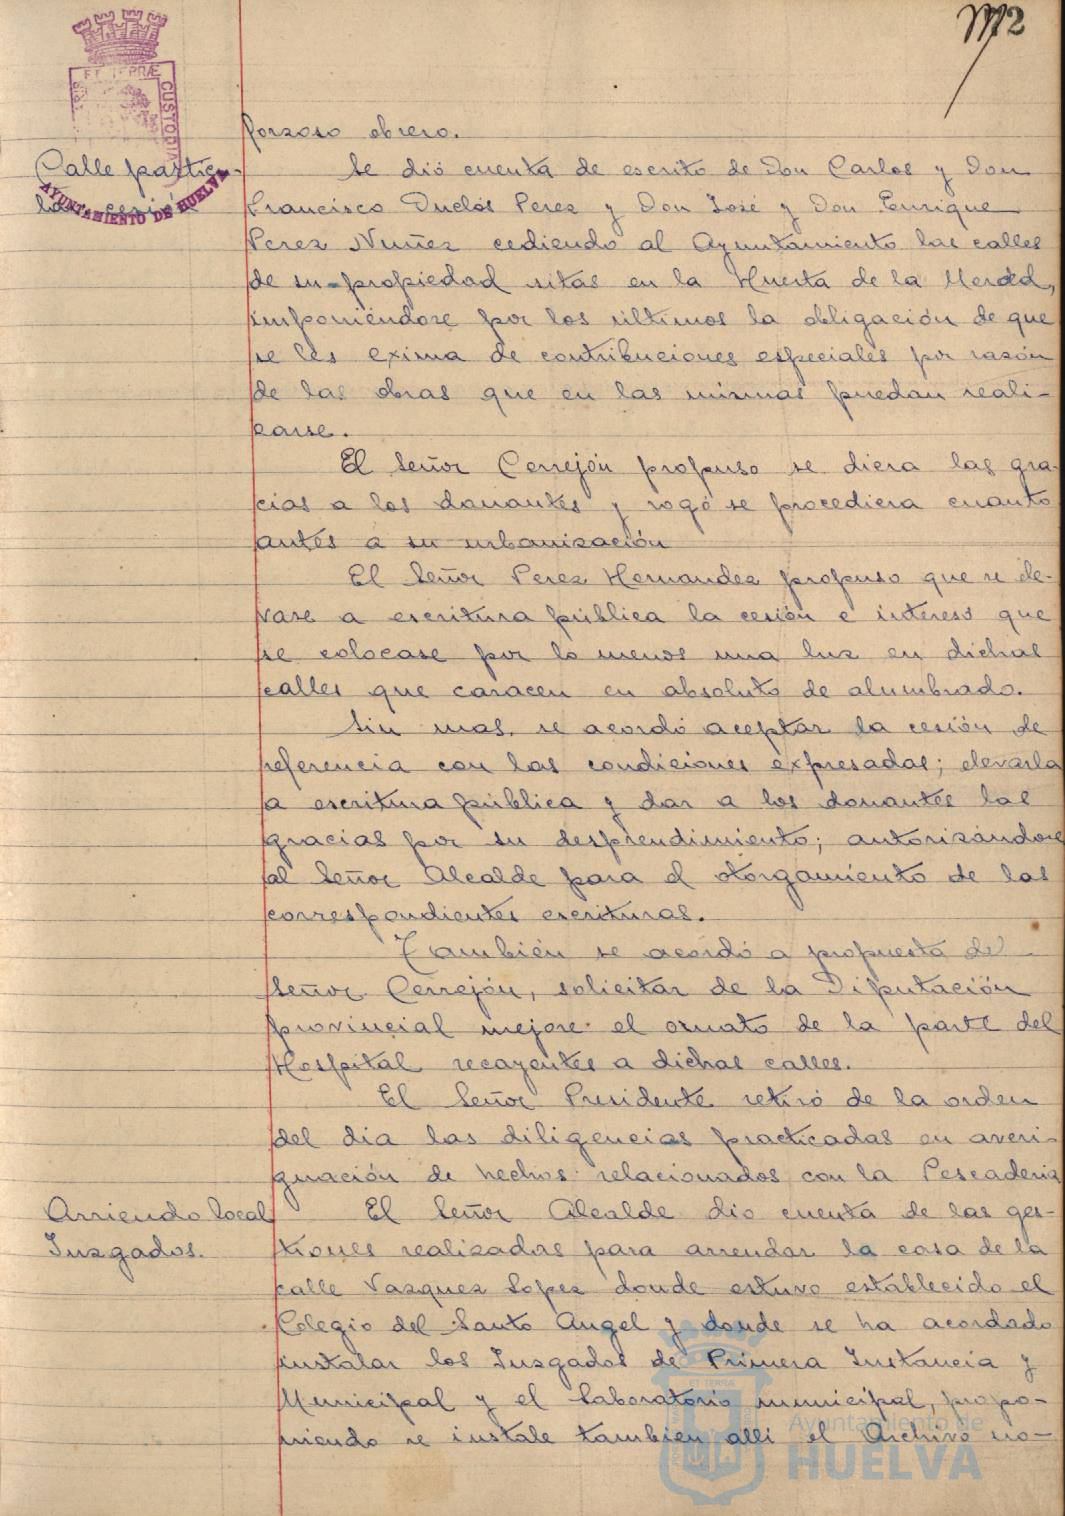 172
forzoso obrero.
Calle particu-
lar cesión
Se dió cuenta de escrito de Don Carlos y Don
Francisco Duclós Perez y Don José y Don Enrique
Perez Nuñez cediendo al Ayuntamiento las calles
de su propiedad sitas en la Huerta de la Merced,
imponiéndose por los ultimos la obligación de que
se les exima de contribuciones especiales por razón
de las obras que en las mismas puedan reali-
zarse.
El Señor Cerrejón propuso se diera las gra-
cias a los donantes y rogó se procediera cuanto
antes a su urbanización
El Señor Perez Hernandez propuso que se ele-
vase a escritura pública la cesión e intereso que
se colocase por lo menos una luz en dichas
calles que caracen en absoluto de alumbrado.
Sin mas, se acordó aceptar la cesión de
referencia con las condiciones expresadas; elevarla
a escritura pública y dar a los donantes las
gracias por su desprendimiento; autorizándose
al Señor Alcalde para el otorgamiento de las
correspondientes escrituras.
Tambien se acordó a propuesta del
Señor Cerrejón, solicitar de la Diputación
provincial mejore el ornato de la parte del
Hospital recayentes a dichas calles.
El Señor Presidente retiró de la orden
del dia las diligencias practicadas en averi-
guación de hechos relacionados con la Pescaderia
Arriendo local
Juzgados.
El Señor Alcalde dio cuenta de las ges-
tiones realizadas para arrendar la casa de la
calle Vazquez Lopez donde estuvo establecido el
Colegio del Santo Angel y donde se ha acordado
instalar los Juzgados de Primera Instancia y
Municipal y el Laboratorio municipal, propo-
niendo se instale tambien alli el Archivo no-
ET TERRÆ
CUSTODIA
AYUNTAMIENTO DE HUELVA
Ayuntamiento de
HUELVA